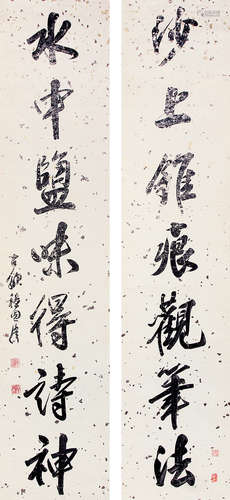 沙上錐痕觀筆法
水中鹽味得詩神